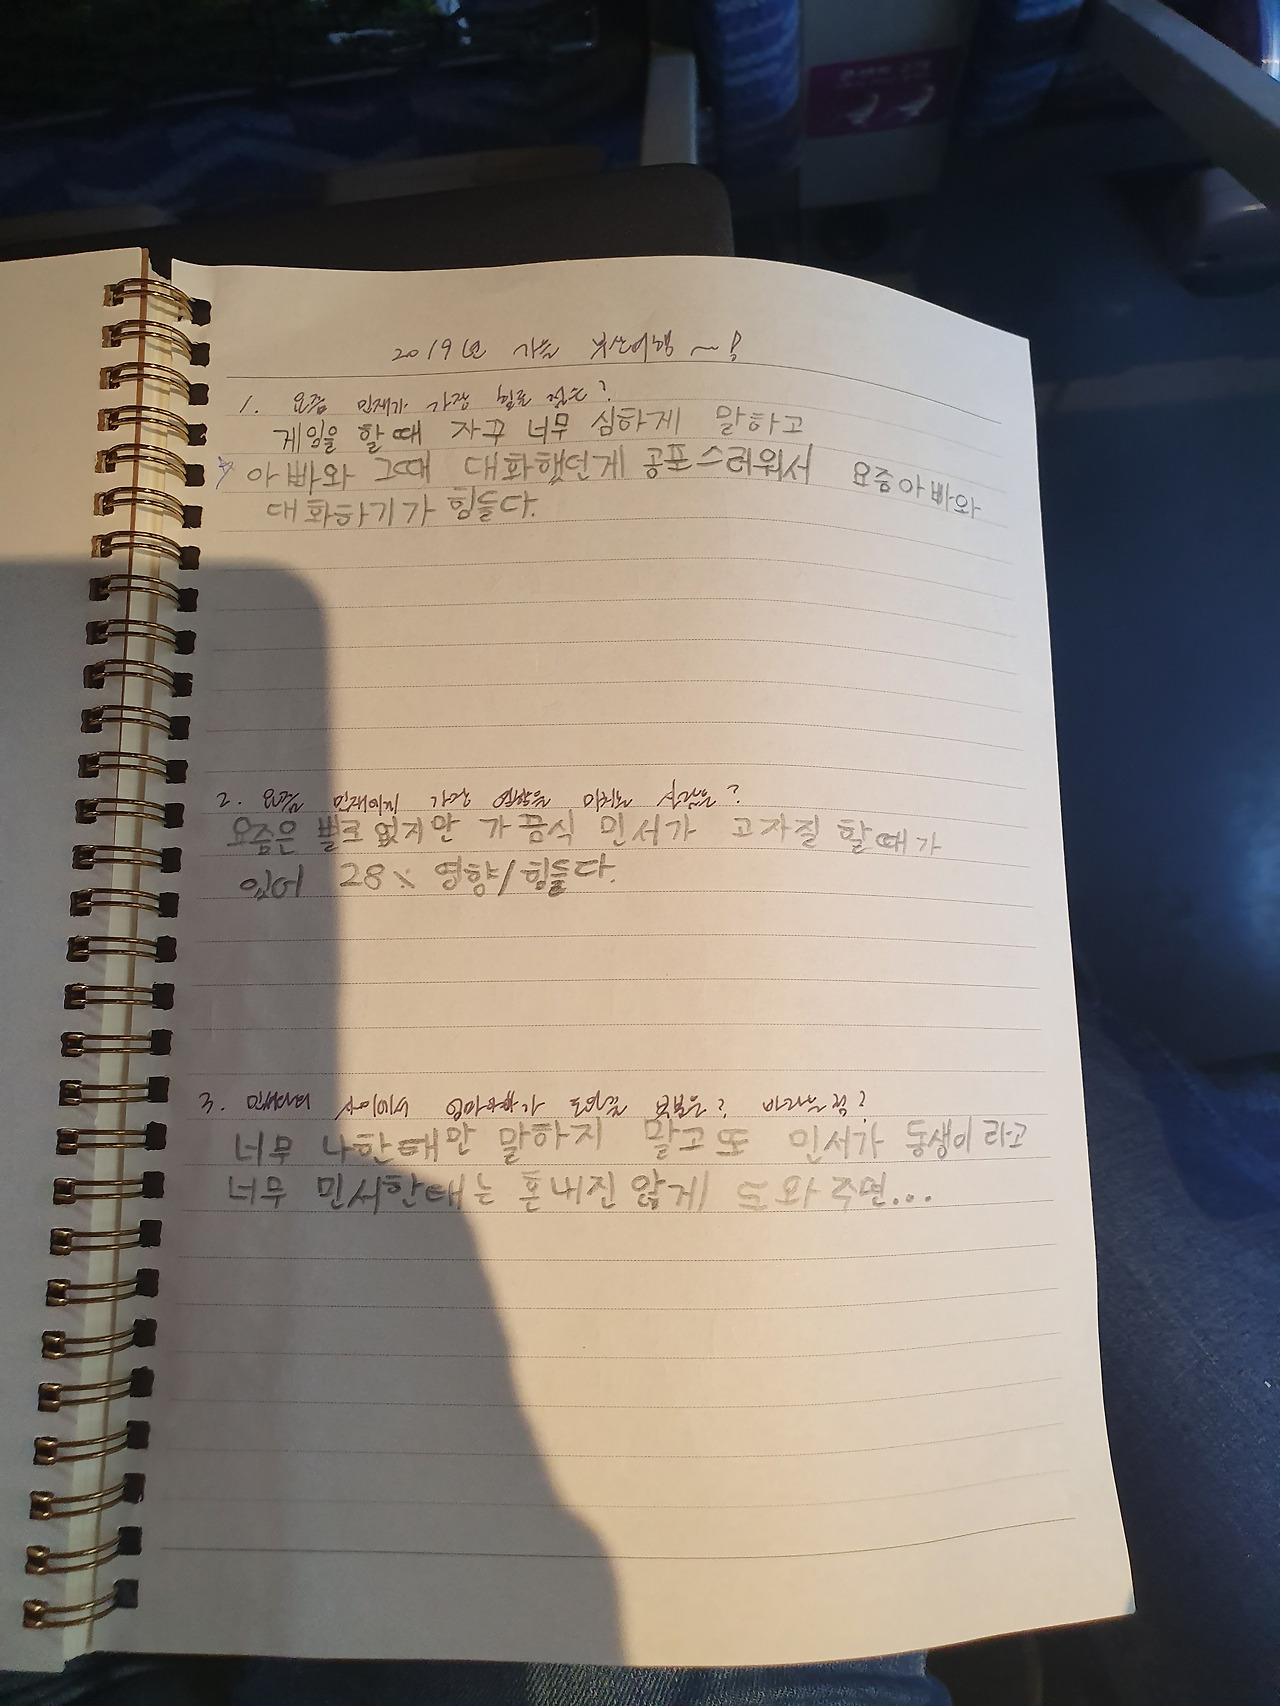 2019년 가을 부산여행 ~!
1. 요즘 민재가 가장 힘든 점은?
게임을 할때 자꾸 너무 심하게 말하고
아빠와 그때 대화했던게 공포스러워서 요즘아빠와
대화하기가 힘들다.
2. 요즘 민재에게 가장 영향을 미치는 사람은?
요즘은 별로 없지만 가끔식 민서가 고자질 할때가
있어 28% 영향/힘들다.
3. 민서와의 사이에서 엄마아빠가 도와줄 부분은? 바라는점?
너무 나한태만 말하지 말고 또 민서가 동생이라고
너무 민서한태는 혼내진 않게 도와주면...